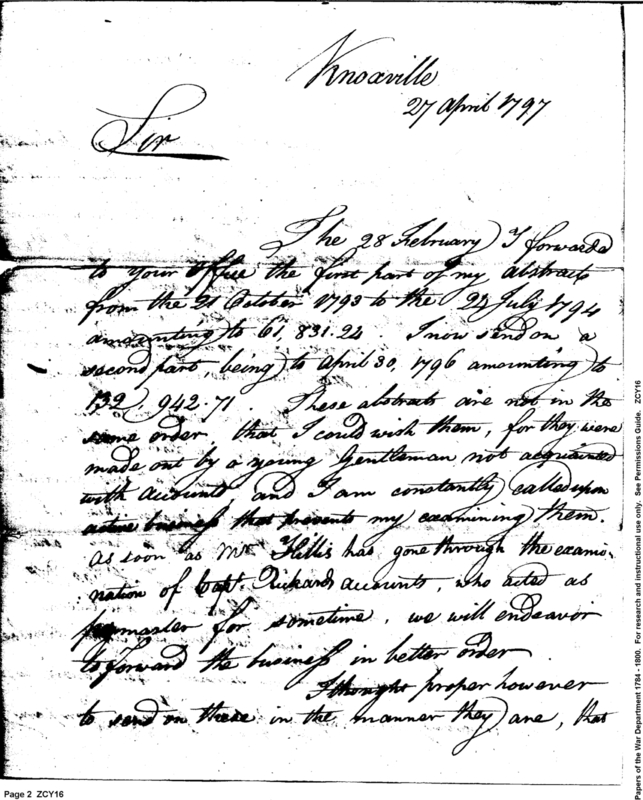 Knoxville
27 April 1797
Sir
The 28 February I forwarded
to your office the first part of my abstracts
from the 21 October 1793 to the 22 July 1794
amounting to 61,831.24. I now send on a
second part, being to April 30, 1796 amounting to
132,942.71. These abstracts are not in the
same order, that I could wish them, for they were
made out by a young Gentleman not acquainted
with accounts and I am constantly called upon
active business that prevents my examining them.
As soon as Mr has gone through the exami-
nation of Capt. Rickards accounts, who acted as
paymaster for sometime, we will endeavor
to forward the business in better order
I thought proper however
to send on these in the manner they are, that
Page 2 ZCY16
Papers of the War Department 1784 - 1800. For research and instructional use only. See Permissions Guide. ZCY16